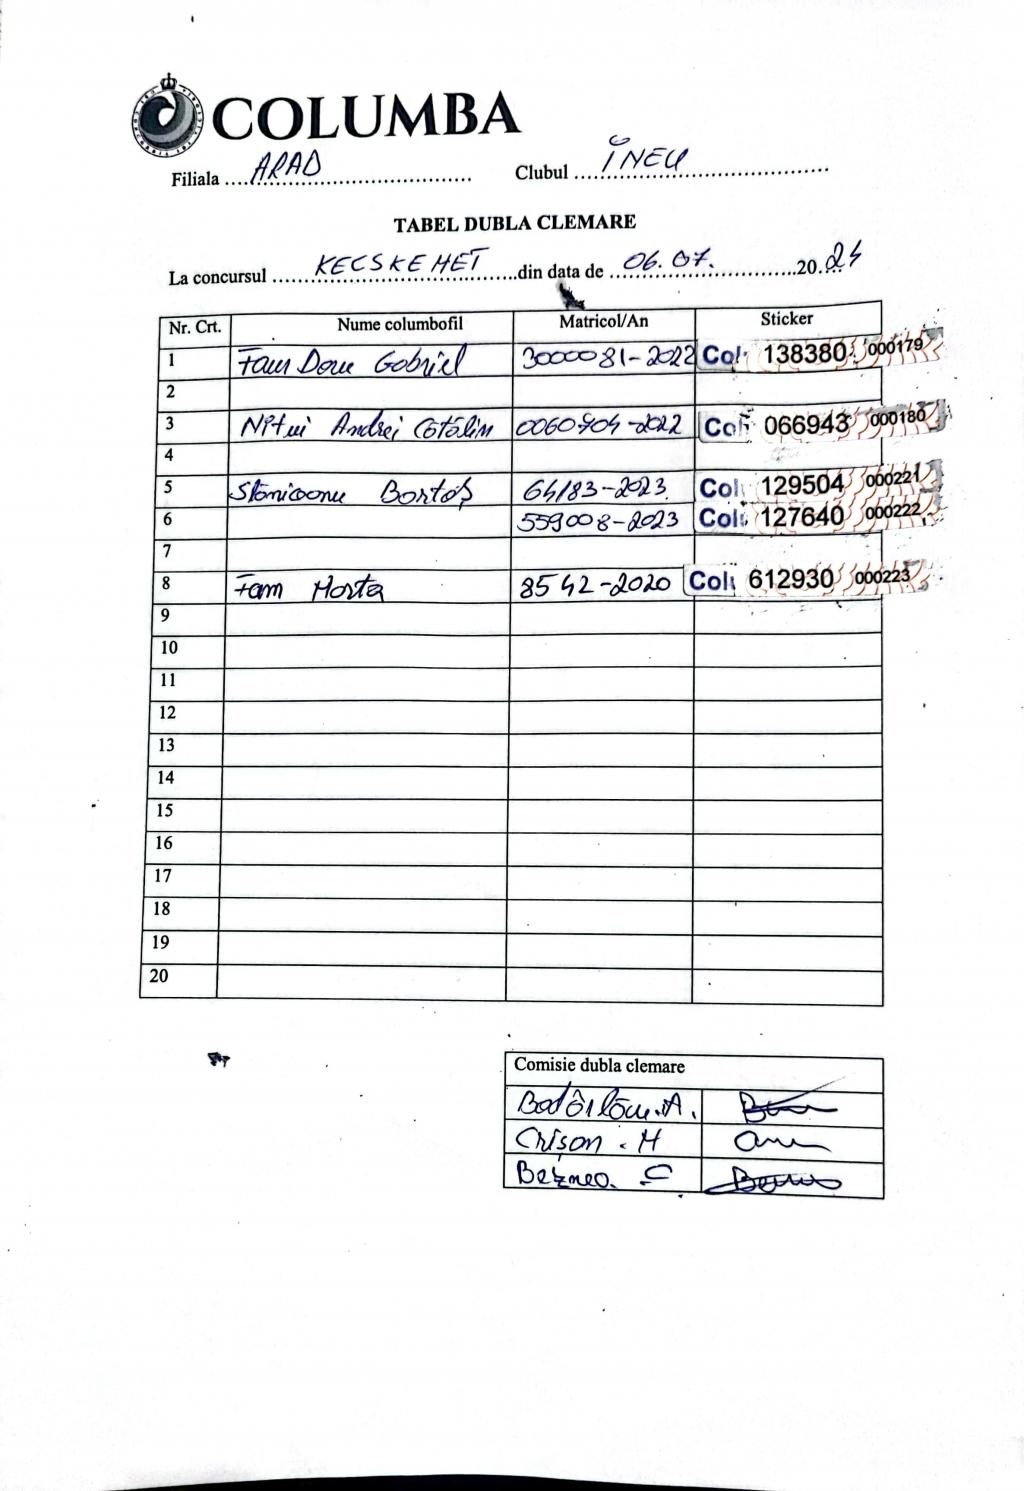 COLUMBA
Filiala ....ARAD.............................. Clubul ....INEU..............................
TABEL DUBLA CLEMARE
La concursul ......KECSKEMET......din data de ..06.07...............20.24
Nr. Crt. Nume columbofil Matricol/An Sticker
1 Fam Dom Gabriel 3000081-2022 Col 138380 000179
2
3 Nitui Andrei Cătălin 0060904-2022 Col 066943 000180
4
5 Stănicoanu Bortoș 64183-2023 Col 129504 000221
6 559008-2023 Col 127640 000222
7
8 Fam Horta 8542-2020 Colu 612930 000223
9
10
11
12
13
14
15
16
17
18
19
20
Comisie dubla clemare
A.
Crișan . H
C